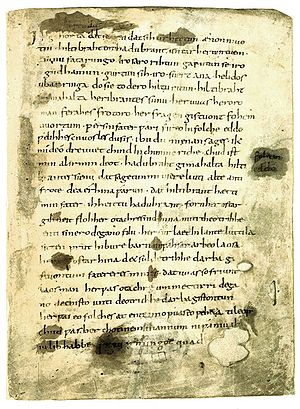 gihorta ðat seggen ðat sih urhettun ænon muo
tin. hiltibraht enti haðubrant. untar heriun tuem.
sunu fatarungo. iro saro rihtun garutun se iro
guðhamun. gurtun sih. iro. suert ana. helidos
ubar ringa do sie to dero hiltu ritun. hiltibraht
gimahalta heribrantes sunu. her uuas heroro
man ferahes frotoro. her fragen gistuont fohem
uuortum. ƿer sin fater ƿari fireo in folche eddo
ƿelihhes cnuosles du sis. ibu du mi enan sages. ik
mideo dreuuet chind in chunincriche. chud ist
min al irmin deot. hadubraht gimahalta hilti
brantes sunu dat sagetun mi usere liuti alte anti
frote dea erhina ƿarun. dat hiltibrant hætti
min fater. ih heittu hadubrant. forn her ostar
gihueit floh her otachres nid hina miti theotrihhe.
enti sinero degano filu. her furlaet in lante luttila
sitten prut in bure barn unƿahsan arbeo laosa.
ostar hina d& sid d&rihhe darba gi
stuontum fatereres mines. dat uuas so friunt
laos man her ƿas otachre ummett irri dega
no dechisto unti deotrichhe darba gistontun
her ƿas eo folches at ente imo ƿuas eo feh&a ti leop
chud ƿas her chonnem mannum ni ƿaniu ih
iu lib habbe irmingot quad